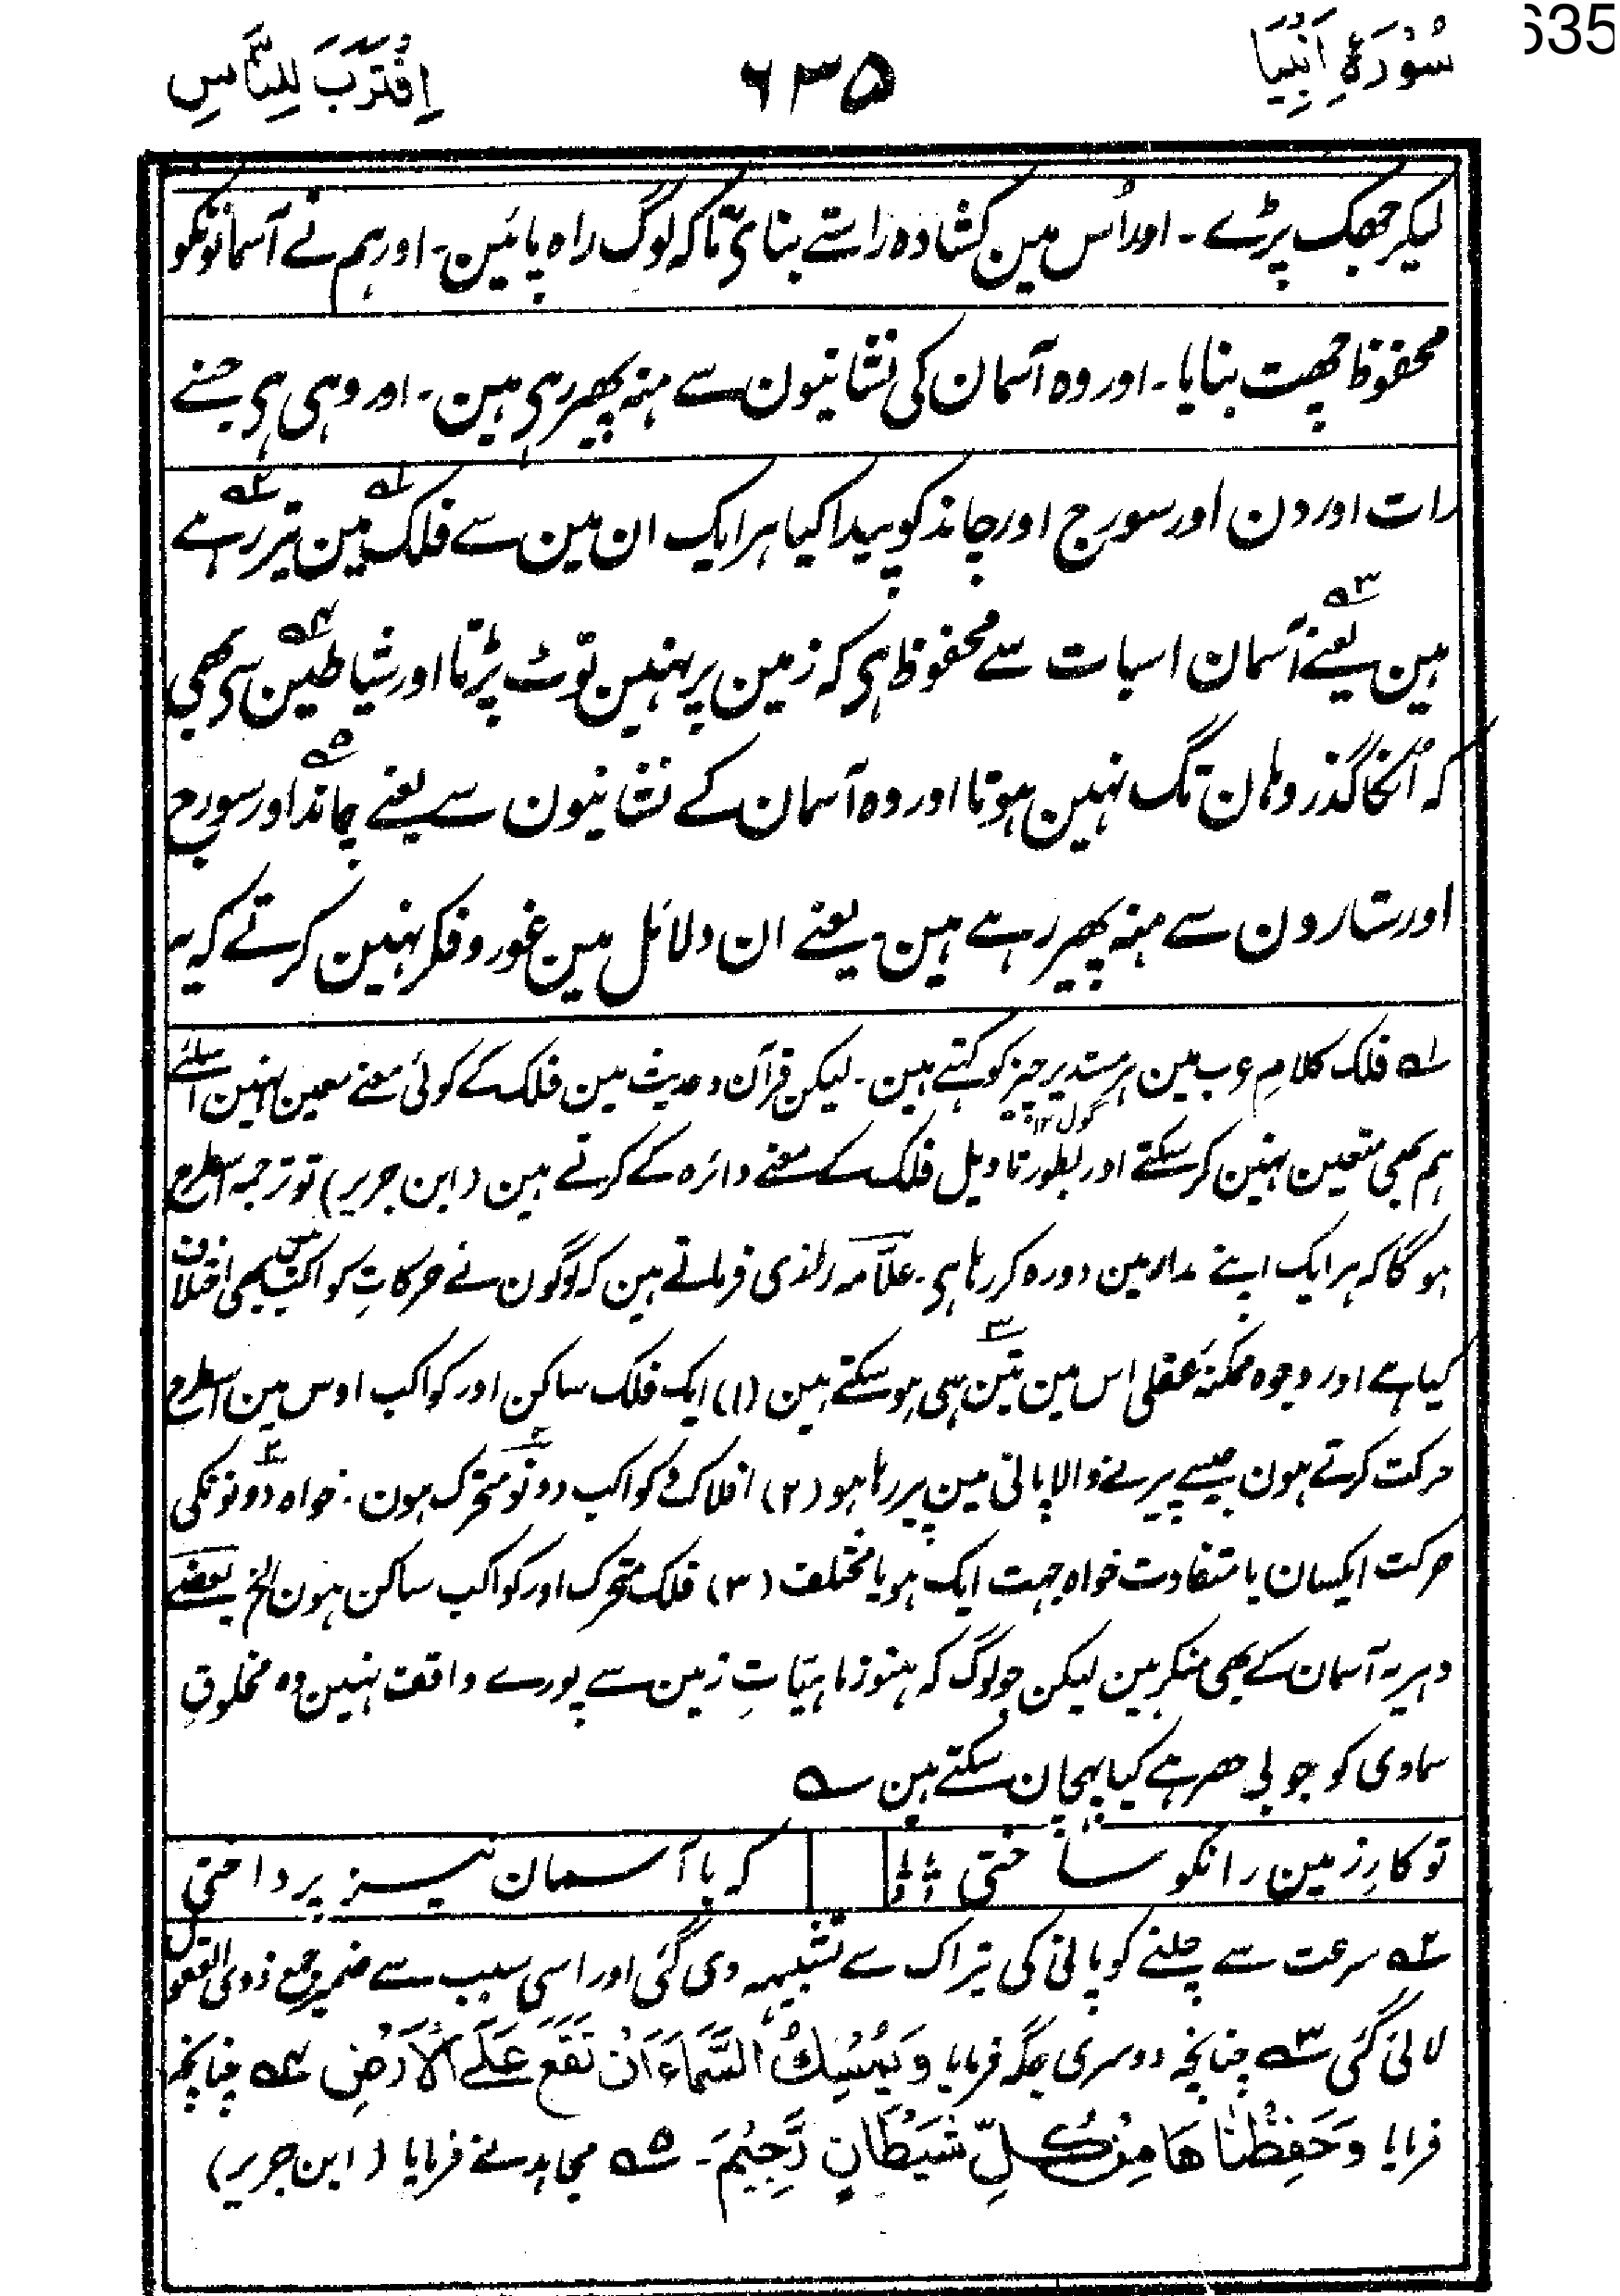 635
سُوْرَۃِ اَنْبِیَا ۶۳۵ اِقْتَرَبَ لِلنَّاسِ
لیکر جھک پڑے ۔ اور اُس مین کشادہ راستے بنائ تاکہ لوگ راہ پائین ۔ اور ہم نے آسمانونکو
محفوظ چھت بنایا ۔ اور وہ آسمان کی نشانیون سے منہ پھیر رہی ہین ۔ اور وہی ہی جسنے
رات اور دن اور سورج اور چاند کو پیدا کیا ہر ایک ان مین سے فلک ۱ھ مین تیر ۲ھ رہے
ہین یعنے ۳ھ آسمان اسبات سے محفوظ ہی کہ زمین پر نہین ٹوٹ پڑتا اور شیاطین ۴ھ سی بھی
کہ اُنکا گذر وہان تک نہین ہوتا اور وہ آسمان کے نشانیون سے یعنے ۵ھ چاند اور سورج
اور ستارون سے منہ پھیر رہے ہین ۔ یعنے ان دلائل مین غور و فکر نہین کرتے کہ یہ
۱ھ فلک کلامِ عرب مین ہر مستدیر چیز کو کہتے ہین ۔ لیکن قرآن و حدیث مین فلک کے کوئی معنے معین نہین اسلئے
گول ۱۲
ہم بھی متعین نہین کر سکتے اور بطور تاویل فلک کے معنے دائرہ کے کرتے ہین (ابن جریر) تو ترجمہ اسطرح
ہوگا کہ ہر ایک اپنے مدار مین دورہ کر رہا ہی ۔ علامہ رازی فرماتے ہین کہ لوگون نے حرکاتِ کواکب مین بھی اختلاف
کیا ہے اور وجوہ ممکنہ عقلی اس مین تین ۳ ہی ہو سکتے ہین (۱) ایک فلک ساکن اور کواکب اوس مین اسطرح
حرکت کرتے ہون جیسے پیرنے والا پانی مین پیر رہا ہو (۲) افلاک و کواکب دونو ۲ متحرک ہون ۔ خواہ دونونکی ۲
حرکت ایکسان یا متفاوت خواہ جہت ایک ہو یا مختلف (۳) فلک متحرک اور کواکب ساکن ہون الخ بعضے
دہریہ آسمان کے بھی منکر ہین لیکن جو لوگ کہ ہنوز ماہیّاتِ زمین سے پورے واقف نہین وہ مخلوقِ
سماوی کو جو بی حصر ہے کیا پہچان سکتے ہین ؎
تو کارِ زمین را نکو ساختی کہ با آسمان نیز پرداختی
۲ھ سرعت سے چلنے کو پانی کی تیراک سے تشبیہہ دی گئی اور اسی سبب سے ضمیر جمع ذوی العقول
لائی گئی ۳ھ چنانچہ دوسری جگہ فرمایا وَیُمْسِکُ السَّمَآءَ اَنْ تَقَعَ عَلَی الْاَرْضِ ۴ھ چنانچہ
فرمایا وَحَفِظْنٰاھَا مِنْ کُلِّ شَیْطَانٍ رَّجِیْمَ ۔ ۵ھ مجاہد نے فرمایا (ابن جریر)